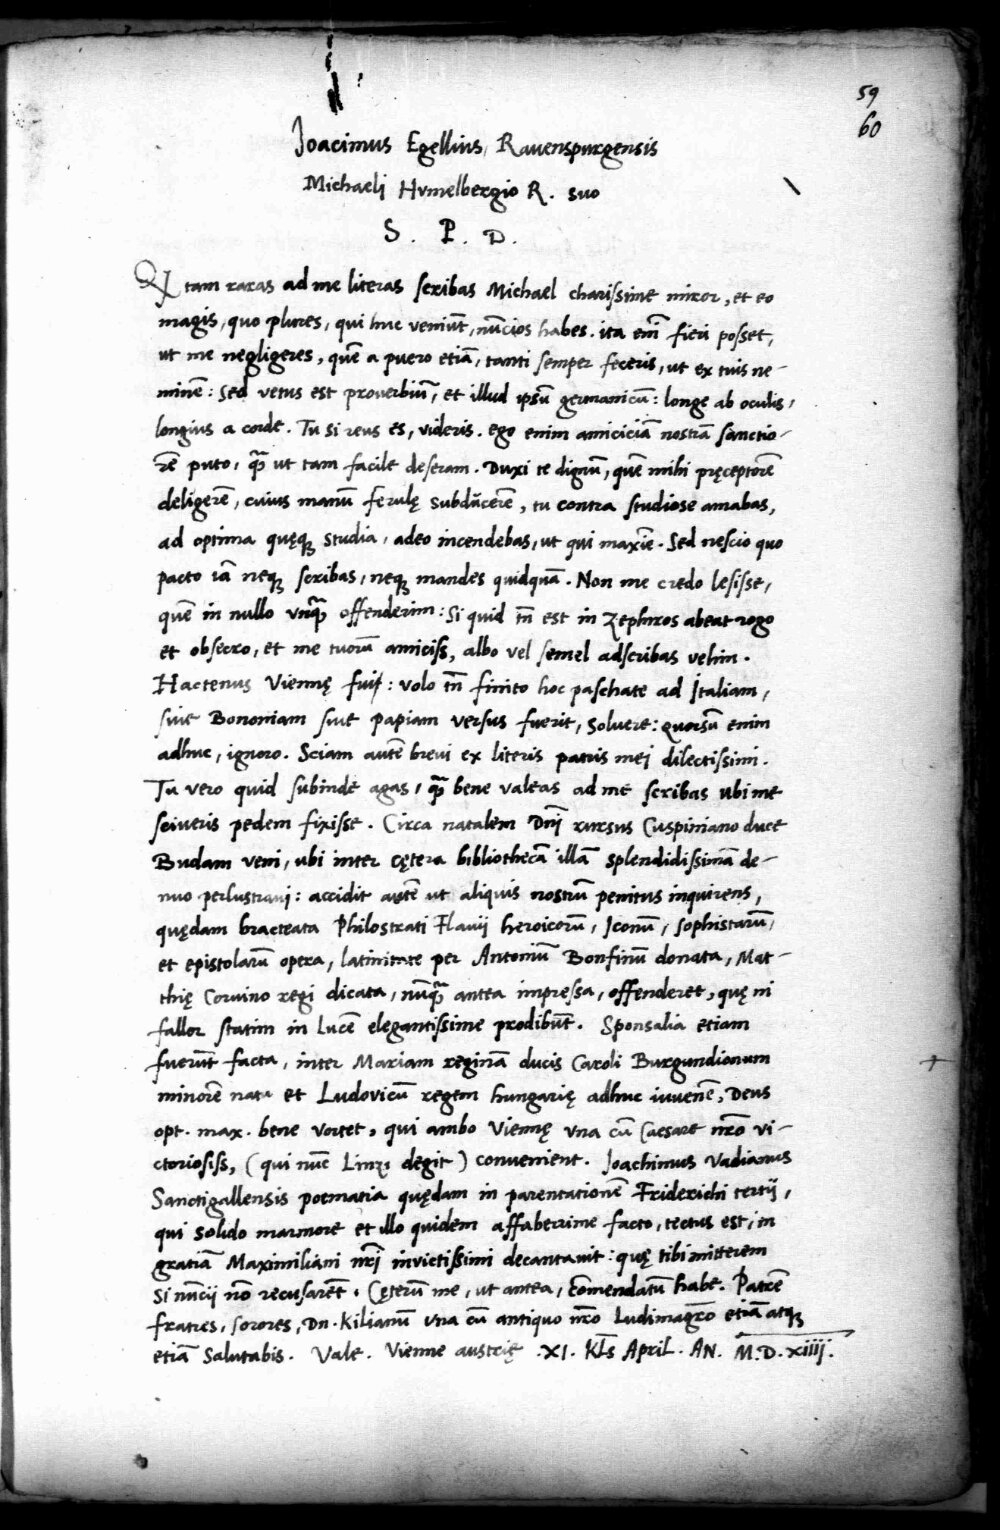 59
60
Joacimus Egellius Ravenspurgensis
Michaeli Hvmelbergio R. suo
S. P. D.
Qƺ tam raras ad me literas scribas Michael charissime miror, et eo
magis, quo plures, qui huc veniūt, nūcios habes. ita em̄ fieri posset,
ut me negligeres, quē a puero etiā, tanti semper feceris, ut ex tuis ne-
minē: Sed vetus est proverbiū, et illud ipsū germanicū: longe ab oculis,
longius a corde. Tu si reus es, videris. ego enim amiciciā nostrā sanctio-
rē puto, qᷓ ut tam facile deseram. Duxi te dignū, quē mihi pręceptorē
deligerē, cuius manū ferulę subducerē, tu contra studiose amabas,
ad optima quęqꝫ studia, adeo incendebas, ut qui maxīe. Sed nescio quo
pacto iā neqꝫ scribas, neqꝫ mandes quidquā. Non me credo lesisse,
quē in nullo vnqᷓ offenderim: Si quid tn̄ est in Zephiros abeat rogo
et obsecro, et me tuorū amiciss, albo vel semel adscribas velim.
Hactenus Viennę fui: volo tn̄ finito hoc paschate ad Italiam,
siue Bononiam siue papiam versus fuerit, soluere: quorsū enim
adhuc, ignoro. Sciam autē brevi ex literis patris mei dilectissimi.
Tu vero quid subinde agas, qᷓ bene valeas ad me scribas ubi me
sciueris pedem fixisse. Circa natalem Dn̄i rursus Cuspiniano duce
Budam veni, ubi inter cętera bibliothecā illā splendidissimā de-
nuo perlustravi: accidit autē ut aliquis nostrū penitus inquirens,
quędam bracteata Philostrati Flauii heroicorū, Iconū, sophistarū,
et epistolarū opera, latinitate per Antoniū Bonfinū donata, Mat-
thię Coruino regi dicata, nūqᷓ antea impressa, offenderet, quę ni
fallor statim in lucē elegantissime prodibūt. Sponsalia etiam
fuerūt facta, inter Mariam reginā ducis Caroli Burgundionum
minorē natu et Ludovicū regem hungarię adhuc iuvenē, Deus
opt. max. bene vortet, qui ambo Viennę vna cū Caesare nr̄o vi-
ctoriosiss, (qui nūc Linzi degit) convenient. Joachimus Vadianus
Sanctigallensis poematia quędam in parentationē Friderichi tertij,
qui solido marmore et illo quidem affaberrime facto, tectus est, in
gratiā Maximiliani nr̄i invictissimi decantavit: quę tibi mitterem
si nūcij nō recusarēt. Cęterū me, ut antea, cōmendatū habe. Patrē
fratres, sorores, Dn. Kilianū vna cū antiquo nr̄o Ludimagr̄o etiā atqꝫ
etiā salutabis. Vale. Vienne austrię .XI. Kl̄s April. AN. M.D.xiiij.